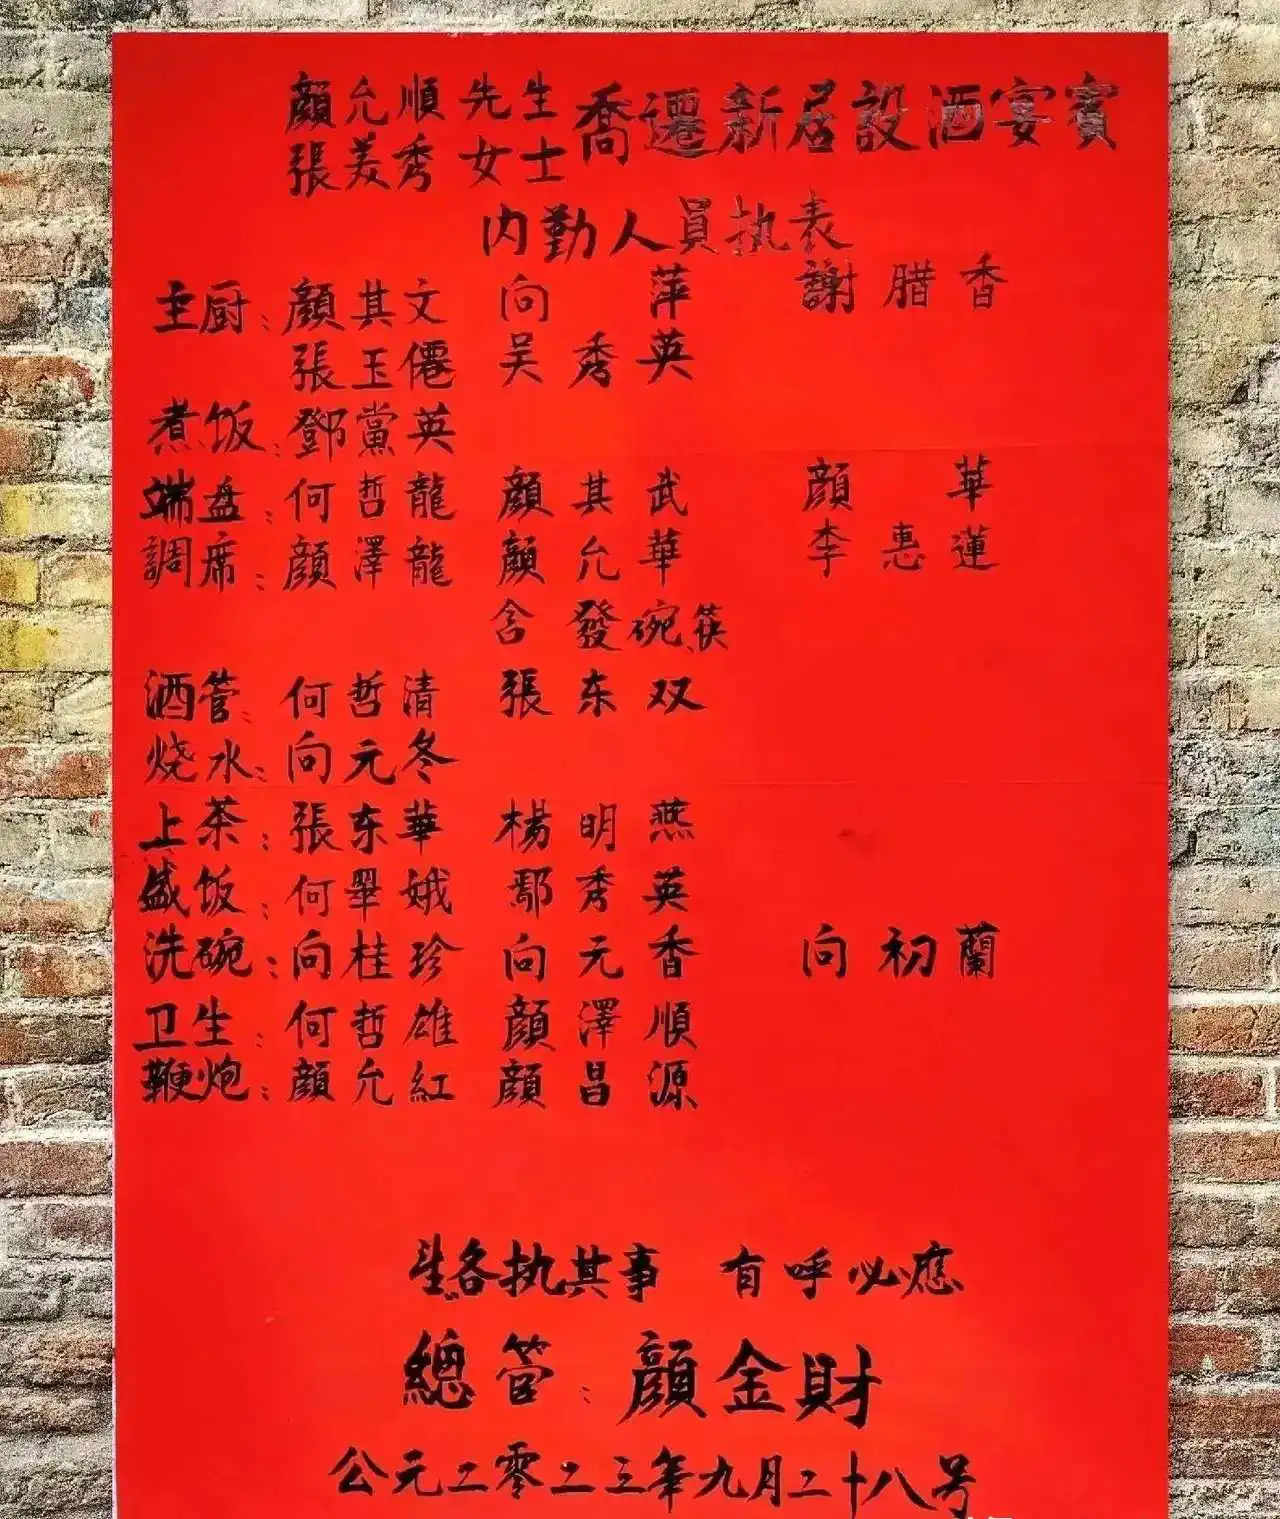 顏允順先生 喬遷新居設酒宴賓
張美秀女士
内勤人員执表
主厨：顏其文 向萍 謝腊香
張玉僊 吴秀英
煮饭：鄧黨英
端盘：何哲龍 顏其武 顏華
調席：顏澤龍 顏允華 李惠蓮
含發碗筷
酒管：何哲清 張东双
烧水：向元冬
上茶：張东華 楊明燕
盛饭：何翠娥 鄢秀英
洗碗：向桂珍 向元香 向初蘭
卫生：何哲雄 顏澤順
鞭炮：顏允紅 顏昌源
各执其事 有呼必應
總管：顏金財
公元二零二三年九月二十八号